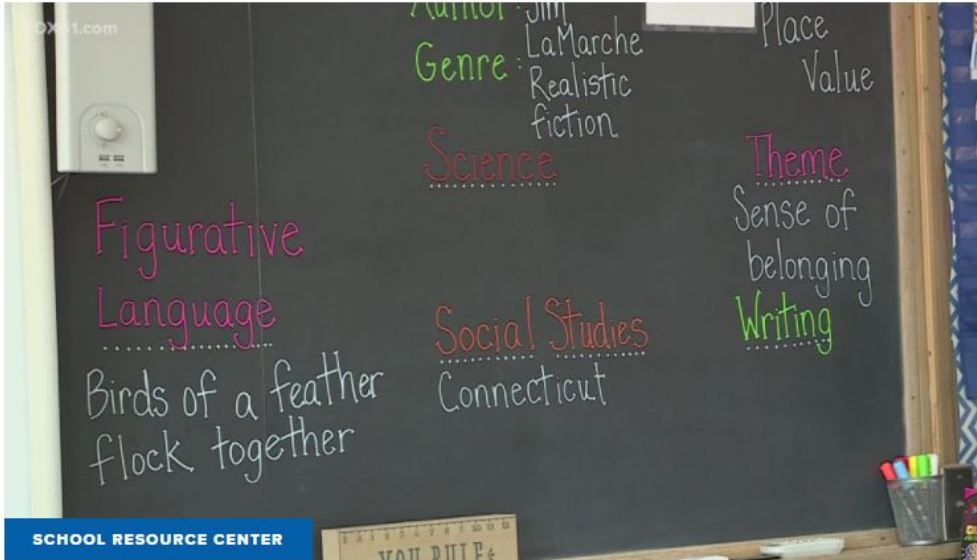 FOX61.com
Author: Jim
LaMarche
Genre: Realistic
fiction
Place
Value
Science
Theme
Sense of
belonging
Figurative
Language
Birds of a feather
flock together
Social Studies
Connecticut
Writing
SCHOOL RESOURCE CENTER
1 2 3 4 5 6 7 8 9 10 11 12
YOU RULE